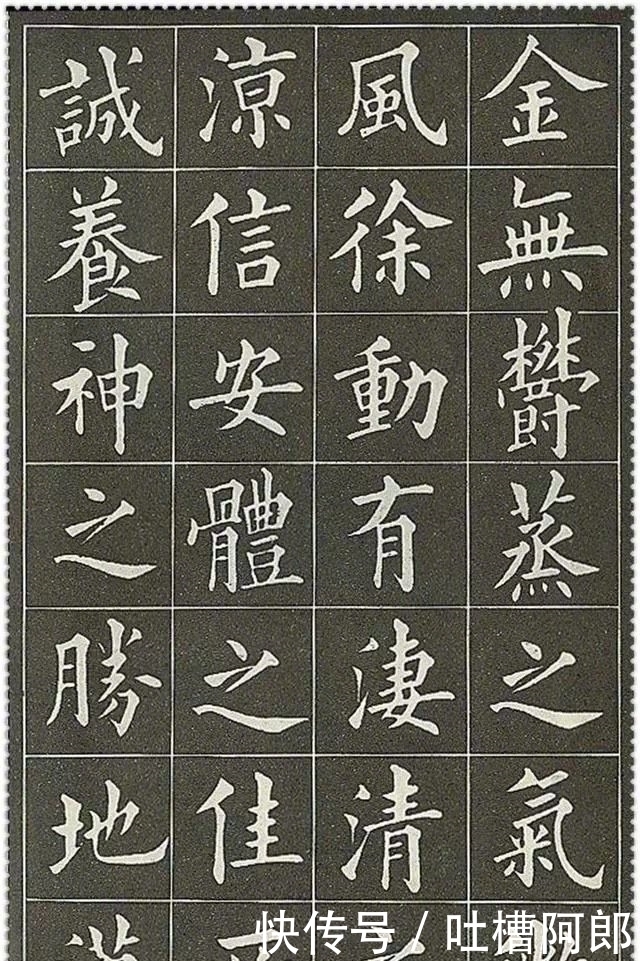 金無鬱蒸之氣
風徐動有淒清
涼信安體之佳
誠養神之勝地
快传号/吐槽阿郎